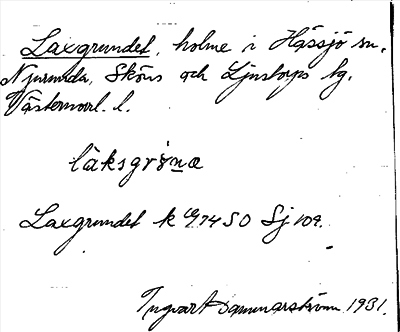 Laxgrundet, holme i Hässjö sn.
Njurunda, Sköns och Ljustorps tg.
Västernorrl. l.
làksgrúnα
Laxgrundet k 1974 SO Sj 109.
Ingvar Hammarström 1931.